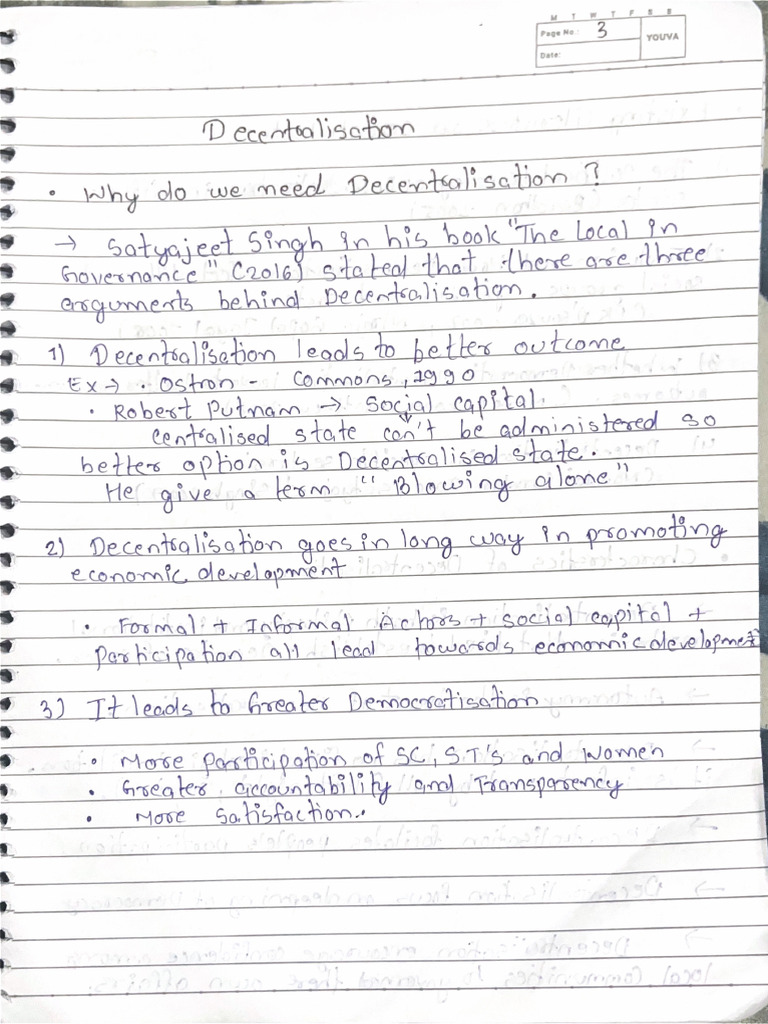 M T W T F S S
Page No.: 3
YOUVA
Date:
Decentralisation
• Why do we need Decentralisation ?
→ Satyajeet Singh in his book "The Local in
Governance" (2016) stated that there are three
arguments behind Decentralisation.
1) Decentralisation leads to better outcome
Ex → • Ostron - Commons, 1990
• Robert Putnam → Social capital.
↓
centralised state can't be administered so
better option is Decentralised state.
He give a term "Blowing alone"
2) Decentralisation goes in long way in promoting
economic development
• Formal + Informal Actors + social capital +
participation all lead towards economic development
3) It leads to Greater Democratisation
• More participation of SC, ST's and Women
• Greater accountability and Transparency
• More satisfaction.